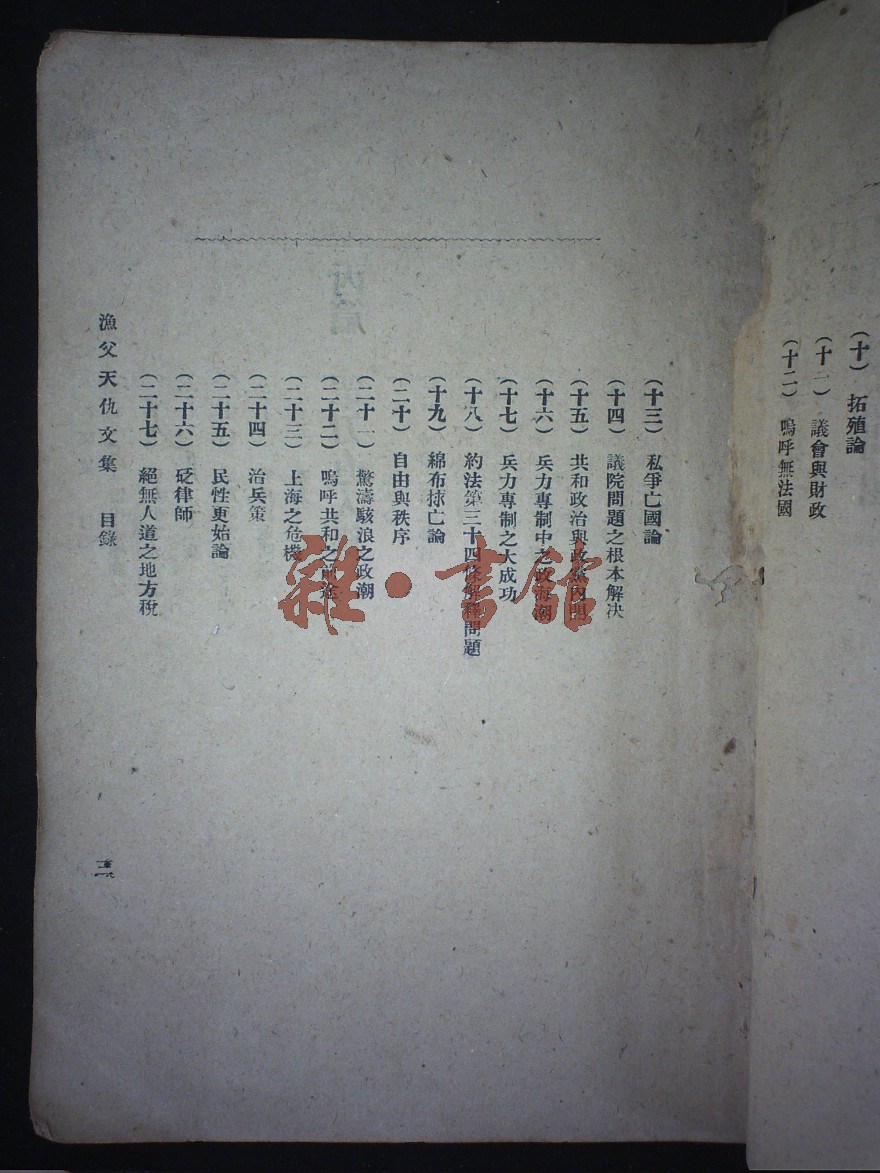 （十）　拓殖論
（十一）　議會與財政
（十二）　嗚呼無法國
（十三）　私爭亡國論
（十四）　議院問題之根本解決
（十五）　共和政治與政黨內閣
（十六）　兵力專制中之政海潮
（十七）　兵力專制之大成功
（十八）　約法第三十四條解釋問題
（十九）　綿布救亡論
（二十）　自由與秩序
（二十一）　驚濤駭浪之政潮
（二十二）　嗚呼共和之前途
（二十三）　上海之危機
（二十四）　治兵策
（二十五）　民性更始論
（二十六）　砭律師
（二十七）　絕無人道之地方稅
漁父天仇文集　目錄
雜·書館